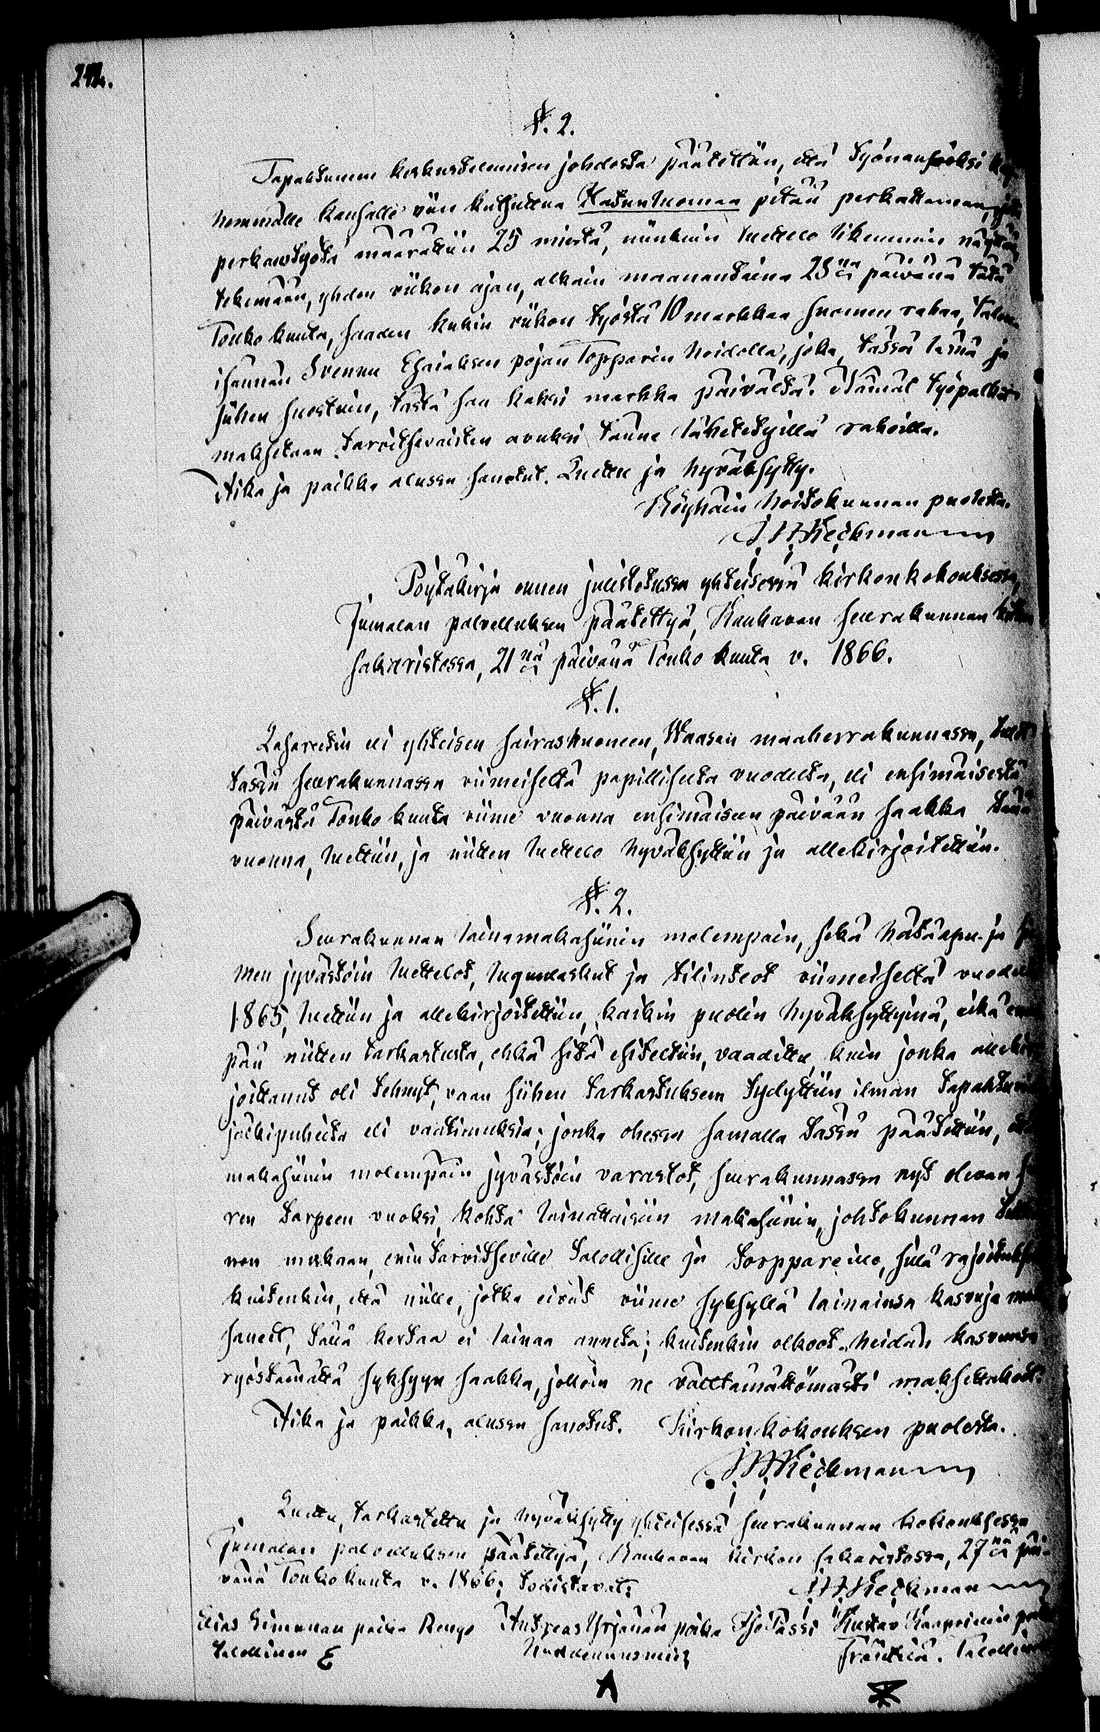 242.
§. 2.
Tapahtuneen keskustelemisen johdosta päätettiin, että työnansioksi
nemmälle kansalle niin kutsuttua Katunluomaa pitää perkattaman,
perkaustyötä määrättiin 25 miestä, niinkuin luettelo likemmin näyttää,
tekemään, yhden viikon ajan, alkain maanantaina 28:na päivänä tätä
Toukokuuta, saaden kukin viikon työstä 10 markkaa Suomen rahaa, talon
isännän Svennu Esaiaksen pojan Topparin hoidolla, joka, tässä läsnä ja
siihen suostuin, tästä saa kaksi markkaa päivältä. Nämät työpalkat
maksetaan tarvitsevaisten avuksi tänne lähetetyillä rahoilla.
Aika ja paikka alussa sanotut. Luettu ja hyväksytty.
Köyhäin hoitokunnan puolesta.
Pöytäkirja ennen julistetussa yhteisessä kirkonkokouksessa,
Jumalan palvelluksen päätettyä, Kauhavan seurakunnan
sakaristossa, 21:nä päivänä Toukokuuta v. 1866.
§. 1.
Lasaretin eli yhteisen sairashuoneen, Waasan maaherrakunnassa,
tässä seurakunnassa viimeiseltä papilliselta vuodelta, eli ensimäisestä
päivästä Toukokuuta viime vuonna ensimäiseen päivään saakka tänä
vuonna, luettiin, ja niitten luettelo hyväksyttiin ja allekirjoitettiin.
§. 2.
Seurakunnan lainamakasiinin molempain, sekä hätäapu- ja
men jyvästöin luettelot, lugunlaskut ja tilinteot viimeiseltä vuodelta
1865, luettiin ja allekirjoitettiin, kaikin puolin hyväksyttyinä, eikä
pää niitten tarkastusta, ehkä sitä esiteltiin, vaadittu, kuin jonka allekir
joittanut oli tehnyt, vaan siihen tarkastukseen tydyttiin ilman tapahtuvia
jälkipuheita eli vaatimuksia; jonka ohessa samalla tässä päätettiin, että
makasiinin molempain jyvästöin varastot, seurakunnassa nyt olevan
ren tarpeen vuoksi, kohta lainattaisiin makasiinin, johtokunnan
non mukaan, enin tarvitseville talollisille ja torppareille, sillä rajoituksella
kuitenkin, että niille, jotka eivät viime syksyllä lainainsa kasvuja
saneet, tällä kertaa ei lainaa anneta; kuitenkin olkoot heidän kasvunsa
ryöstämättä syksyyn saakka, jolloin ne välttämättömästi maksettakoot.
Aika ja paikka, alussa sanotut. Kirkonkokouksen puolesta.
Luettu, tarkastettu ja hyväksytty yhteisessä seurakunnan kokouksessa
Jumalan palvelluksen päätettyä, Kauhavan kirkon sakaristossa, 27:nä päi-
vänä Toukokuuta v. 1866; todistavat;
Elias Simunan poika Rengo Andreas Yrjänän poika Kustaa Kaapoinin poika
talollinen E Talollinen